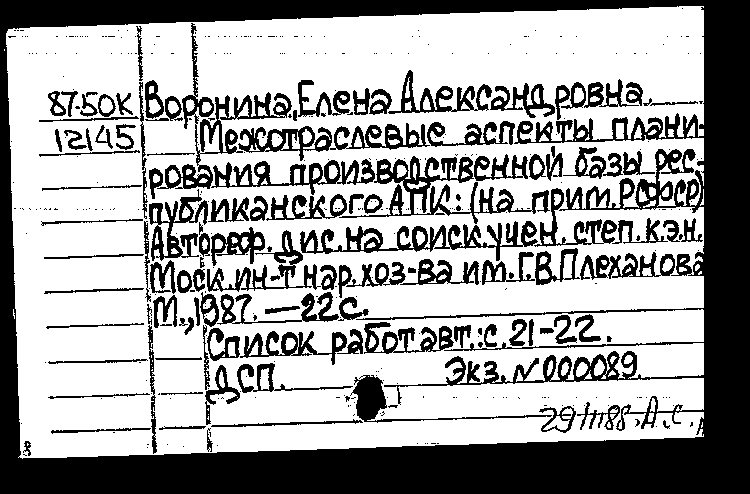 87-50К Воронина, Елена Александровна.
12145 Межотраслевые аспекты плани-
рования производственной базы рес-
публиканского АПК: (на прим. РСФСР)
Автореф. дис. на соиск. учен. степ. к.э.н.
Моск. ин-т нар. хоз-ва им. Г.В. Плеханова
М., 1987. — 22 с.
Список работ авт.: с. 21-22.
ДСП. Экз. N 000089.
А.С.